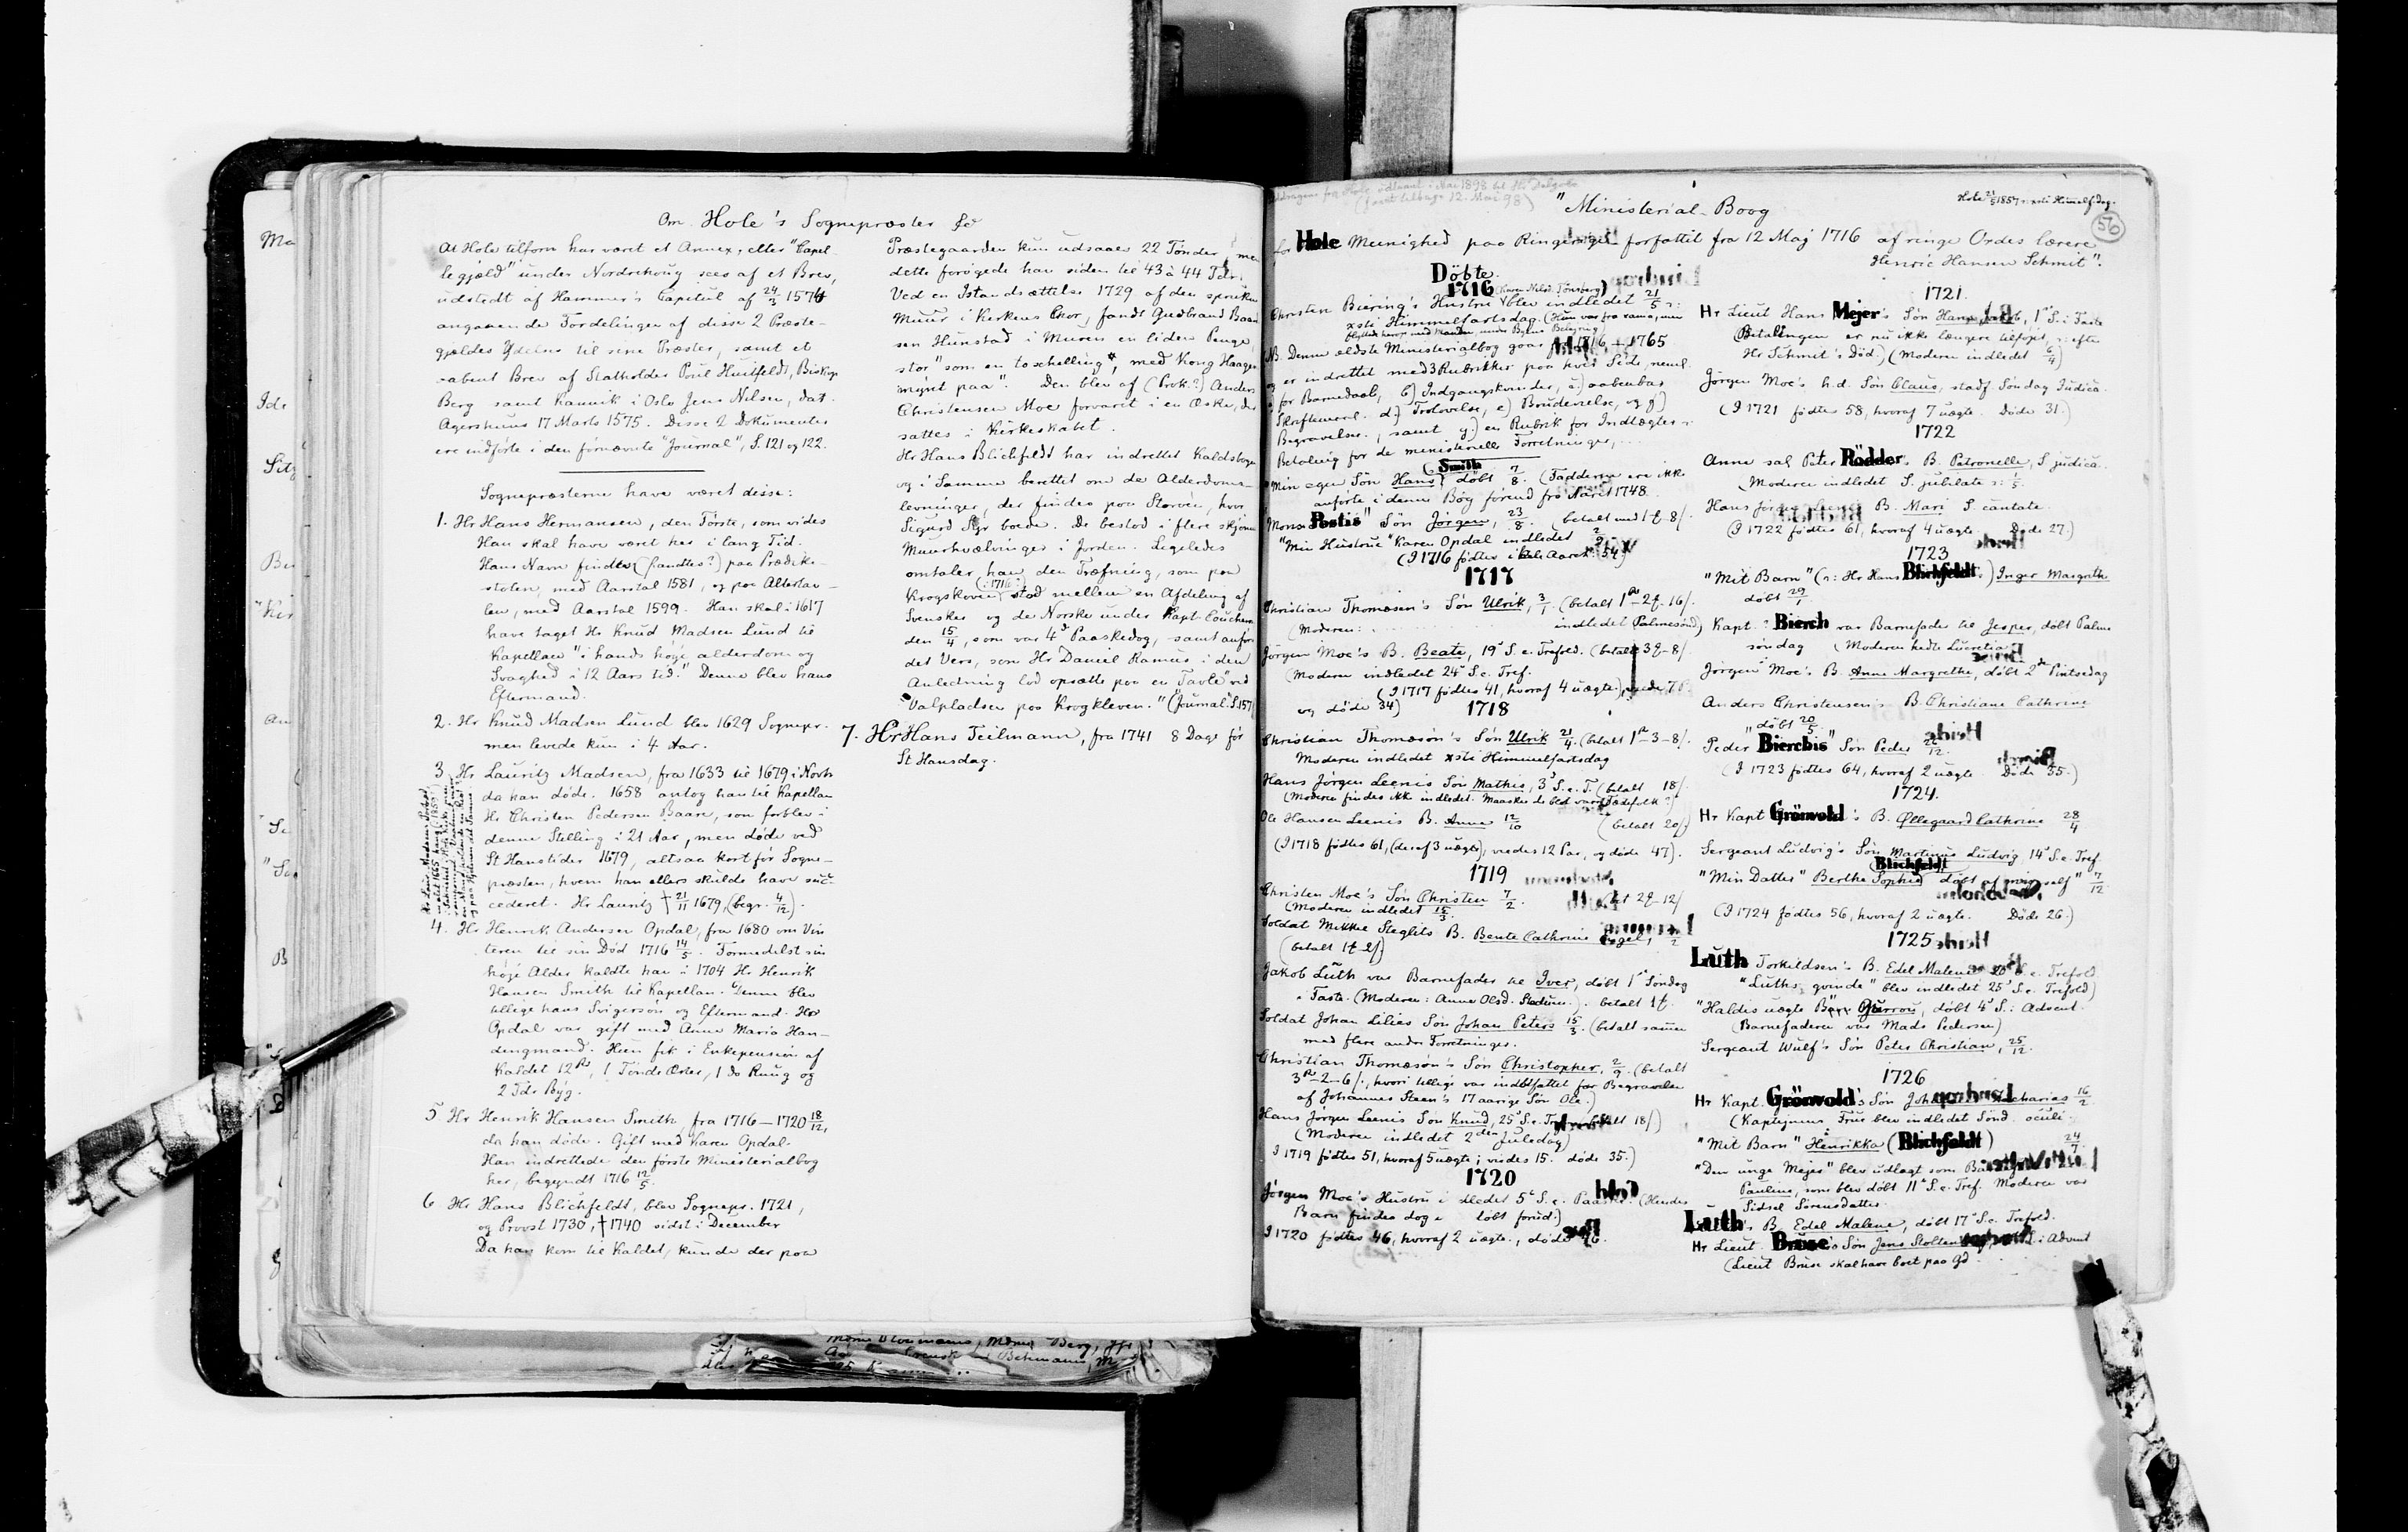 Om Hole's Sognepræster
At Hole tilforn har været et Annex, eller "Capel
legjæld" under Nordrehoug sees af et Brev,
udstedt af Hammer's Capitul af 24/3 1574
angaaende Fordelingen af disse 2 Præste-
gjældes Ydelse til sine Præster, samt et
aabent Brev af Statholder Poul Huitfeldt, Biskop
Berg samt Kannik i Oslo Jens Nilsen, dat.
Agershuus 17 Marts 1575. Disse 2 Dokumenter
ere indførte i den førnævnte "Journal", S. 121 og 122.
Sognepræsterne have været disse:
1. Hr Hans Hermansen, den Første, som vides
Han skal have været her i lang Tid.
Hans Navn findes (fandtes?) paa Prædike-
stolen, med Aarstal 1581, og paa Altertav-
len, med Aarstal 1599. Han skal i 1617
have taget Hr Knud Madsen Lund til
Kapellan "i hands høje alderdom og
Svaghed i 12 Aars tid." Denne blev hans
Eftermand.
2. Hr Knud Madsen Lund blev 1629 Sognepr.
men levede kun i 4 Aar.
3 Hr Lauritz Madsen, fra 1633 til 1679 i Novbr
da han døde. 1658 antog han til Kapellan
Hr Christen Pedersen Baare, som forblev i
denne Stelling i 21 Aar, men døde ved
St Hanstider 1679, altsaa kort før Sogne-
præsten, hvem han ellers skulde have suc-
cederet. Hr Lauritz † 21/11 1679, (begr. 4/12).
4. Hr Henrik Andersen Opdal, fra 1680 om Vin
teren til sin Død 1716 14/5. Formedelst sin
høje Alder kaldte han i 1704 Hr Henrik
Hansen Smith til Kapellan. Denne blev
tillige hans Svigersøn og Eftermand. Hr
Opdal var gift med Anne Maria Han-
dingmand. Hun fik i Enkepension af
Kaldet 12 Rd, 1 Tønde , 1 do Ruug og
2 Tdr Byg.
5 Hr Henrik Hansen Smith, fra 1716–1720 18/12,
da han døde. Gift med Karen Opdal.
Han indrettede den første Ministerialbog
her, begyndt 1716 12/5.
6 Hr Hans Blichfeldt, blev Sognepr. 1721,
og Provst 1730, † 1740 sidst i December
Da han kom til Kaldet, kunde der paa
Præstegaarden kun udsaaes 22 Tønder, men
dette forøgede han siden til 43 à 44 Tdr.
Ved en Istandsættelse 1729 af den sprukne
Muur i Kirkens Chor, fandt Gudbrand
sen Hunstad i Muren en liden Penge
stor "som en toschelling", med Kong Haagen
mynt paa". Den blev af (Prok.?) Anders
Christensen Moe forvaret i en Æske, der
sattes i Kirkeskabet.
Hr Hans Blichfeldt har indrettet Kaldsbogen
og i Samme berettet om de Alderdoms-
levninger, der findes paa Storøen, hvor
Sigurd Syr boede. De bestod i flere skjønne
Muurhvælvinger i Jorden. Ligeledes
omtaler han den Træfning, som paa
(:1716:)
Krogskoven stod mellem en Afdeling af
Svenske og de Norske under Kapt.
den 15/4, som var 4d Paaskedag, samt anfør
det Vers, som Hr Daniel Ramus i den
Anledning lod opsætte paa en Tavle ved
Valpladsen paa Krogkleven." (Journal. S.157
7. Hr Hans Teilmann, fra 1741 8 Dage før
St Hansdag.
"Ministerial-Boog
56
for Hole Meenighed paa Ringerige forfattet fra 12 Maj 1716 af ringe Ordes lærere
Henric Hansen Schmit".
Döbte.
1716
Christen Biering's Hustru blev indledet 21/5
xsti Himmelfartsdag.
NB. Denne ældste Ministerialbog gaar fra 1716 – 1765
og er indrettet med 3 Rubrikker paa hver Side, neml.
for Barnedaab, b) Indgangskvinder, c) aabenbar
Skriftemaal. d.) Trolovelse, e) Brudevielse, og f)
Begravelse, samt g.) en Rubrik for Indtægter
Betaling for de ministerielle Forretninger,
Smith
"Min egen Søn Hans", døbt 7/8. (Fadderne ere ikke
anførte i denne Bog førend fra Aaret 1748
Monsr Postis" Søn Jørgen, 23/8.
"Min Hustrue" Karen Opdal indledet
(I 1716 fødtes i hele Aaret 54.)
1717
Christian Thomæsøn's Søn Ulrik, 3/1 (betalt
(Moderen: indledet Palmesønd)
Jørgen Moe's B. Beate, 19d S. e. Trefold.
(Moderen indledet 24d S. e. Tref.
(I 1717 fødtes 41, hvoraf 4 uægte),
og døde 34)
1718
Christian Thomæsøn's Søn Ulrik 21/4.
Moderen indledet xsti Himmelfartsdag
Hans Jørgen Leenis Søn Mathis, 3d S. e. T. (betalt 18/.
Ole Hansen Leenis B. Anne 12/10 (betalt 20/.)
(I 1718 fødtes 61, (deraf 3 uægte), viedes 12 Par, og døde 47).
1719
Christen Moe's Søn Christen 7/2.
(Moderen indledet 15/3.
Soldat Mikkel Steglits B. Bente Cathrine
Jakob Luth var Barnefader til Iver, døbt 1d Søndag
i Faste. (Moderen: Anne Olsd.
Soldat Johan Lilies Søn Johan Peters 15/3. (betalt sammen
med flere andre Forretninger.
Christian Thomæsøn's Søn Christopher, 2/9. (betalt
3 Rd–2–6/., hvori tillige var indbefattet for Begravelsen
af Johannes Steen's 17 aarige Søn Ole.)
Hans Jørgen Leenis Søn Knud, 25d S. e. Tref
(Moderen indledet 2den Juledag)
I 1719 fødtes 51, hvoraf 5 uægte; viedes 15. døde 35.)
1720
Jørgen Moe's Hustru indledet 5d S. e. Paaske. (Hendes
Barn findes dog døbt forud.)
I 1720 fødtes 46, hvoraf 2 uægte., døde
1721.
Hr Lieut Hans Mejer's Søn Hans Jakob, 1d S. i Faste
(Betalingen er nu ikke længere tilføjet, efter
Hr Schmit's Død.) (Moderen indledet 6/4)
Jørgen Moe's h.d. Søn Claus, stadf. Søndag Judica.
(I 1721 fødtes 58, hvoraf 7 uægte. Døde 31.)
1722
Anne sal Peter Rödder's B. Petronelle, S. judica.
(Moderen indledet S. jubilate
Hans Jørgen Leenis B. Mari S. cantate.
(I 1722 fødtes 61, hvoraf 4 uægte. Døde 27.)
1723
"Mit Barn" (: Hr Hans Blichfeldt) Inger Margrethe
døbt 29/1
Kapt. Bierch var Barnefader til Jesper, døbt Palme
søndag (Moderen hedte Lucretia
Jørgen Moe's B. Anne Margrethe, døbt 2den Pintsedag
Anders Christensen's B. Christiane Cathrine
døbt 20/5.
Peder "Bierchis" Søn Peder 26/12.
(I 1723 fødtes 64, hvoraf 2 uægte Døde 55.)
1724.
Hr Kapt Grönvold's B. Øllegaard Cathrine 28/4
Sergeant Ludvig's Søn Martinus Ludvig 14d S. e. Tref.
Blichfeldt
"Min Datter" Berthe Sophie døbt af mig self" 7/12
(I 1724 fødtes 56, hvoraf 2 uægte. Døde 26.)
1725
Luth Torkildsen's B. Edel Malene 20d S. e. Trefold.
"Luths qvinde" blev indledet 25d S. e. Trefold)
"Haldis uægte Barn Gurron, døbt 4d S. i Advent.
(Barnefaderen var Mads Pedersen)
Sergeant Wulf's Søn Peter Christian, 25/12.
1726
Hr Kapt. Grönvold's Søn Zacharias 16/2
(Kaptejnens Frue blev indledet Sønd. oculi.
"Mit Barn" Henrikka (Blichfeldt) 24/7
"Den unge Mejer" blev udlagt som
Pauline, som blev døbt 11d S. e. Tref. Moderen var
Sidsel Sørensdatter.
Luth's B. Edel Malene, døbt 17d S. e. Trefold.
Hr Lieut. Bruse's Søn Jens i Advent
(Lieut Bruse skal have boet paa Gd.